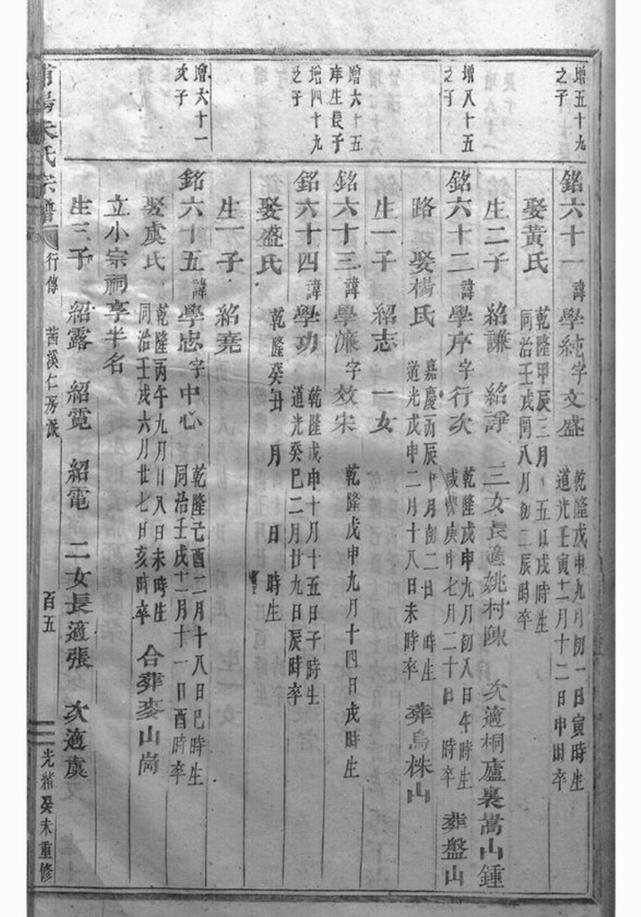 增五十九
之子
銘六十一諱學純字文盛
乾隆戊申九月初一日寅時生
道光壬寅十二月十二日申時卒
娶黃氏
乾隆甲辰三月 五日戌時生
同治壬戌閏八月初二辰時卒
生二子 紹謙 紹諍 三女長適姚村陳 次適桐廬裏嵩山鍾
增八十五
之子
銘六十二諱學序字行次
乾隆戊申九月初八日午時生
咸豐庚申七月二十日 時卒
葬盤山
路 娶楊氏
嘉慶丙辰十月初二日 時生
道光戊申二月十八日未時卒
葬烏株山
生一子 紹志 一女
增六十五
庠生長子
銘六十三諱學濂字效宋
乾隆戊申九月十四日戌時生
增四十九
之子
銘六十四諱學功
乾隆戊申十月十五日子時生
道光癸巳二月廿九日辰時卒
娶盛氏
乾隆癸丑 月 日 時生
生一子 紹堯
增六十一
次子
銘六十五諱學忠字中心
乾隆己酉二月十八日巳時生
同治壬戌十二月十一日酉時卒
娶虞氏
乾隆丙午九月 八日未時生
同治壬戌六月廿七日亥時卒
合葬麥山崗
立小宗祠享半名
生三子 紹露 紹霓 紹電 二女長適張 次適虞
陽朱氏宗譜
行傳
茜溪仁房派
百五
光緒癸未重修